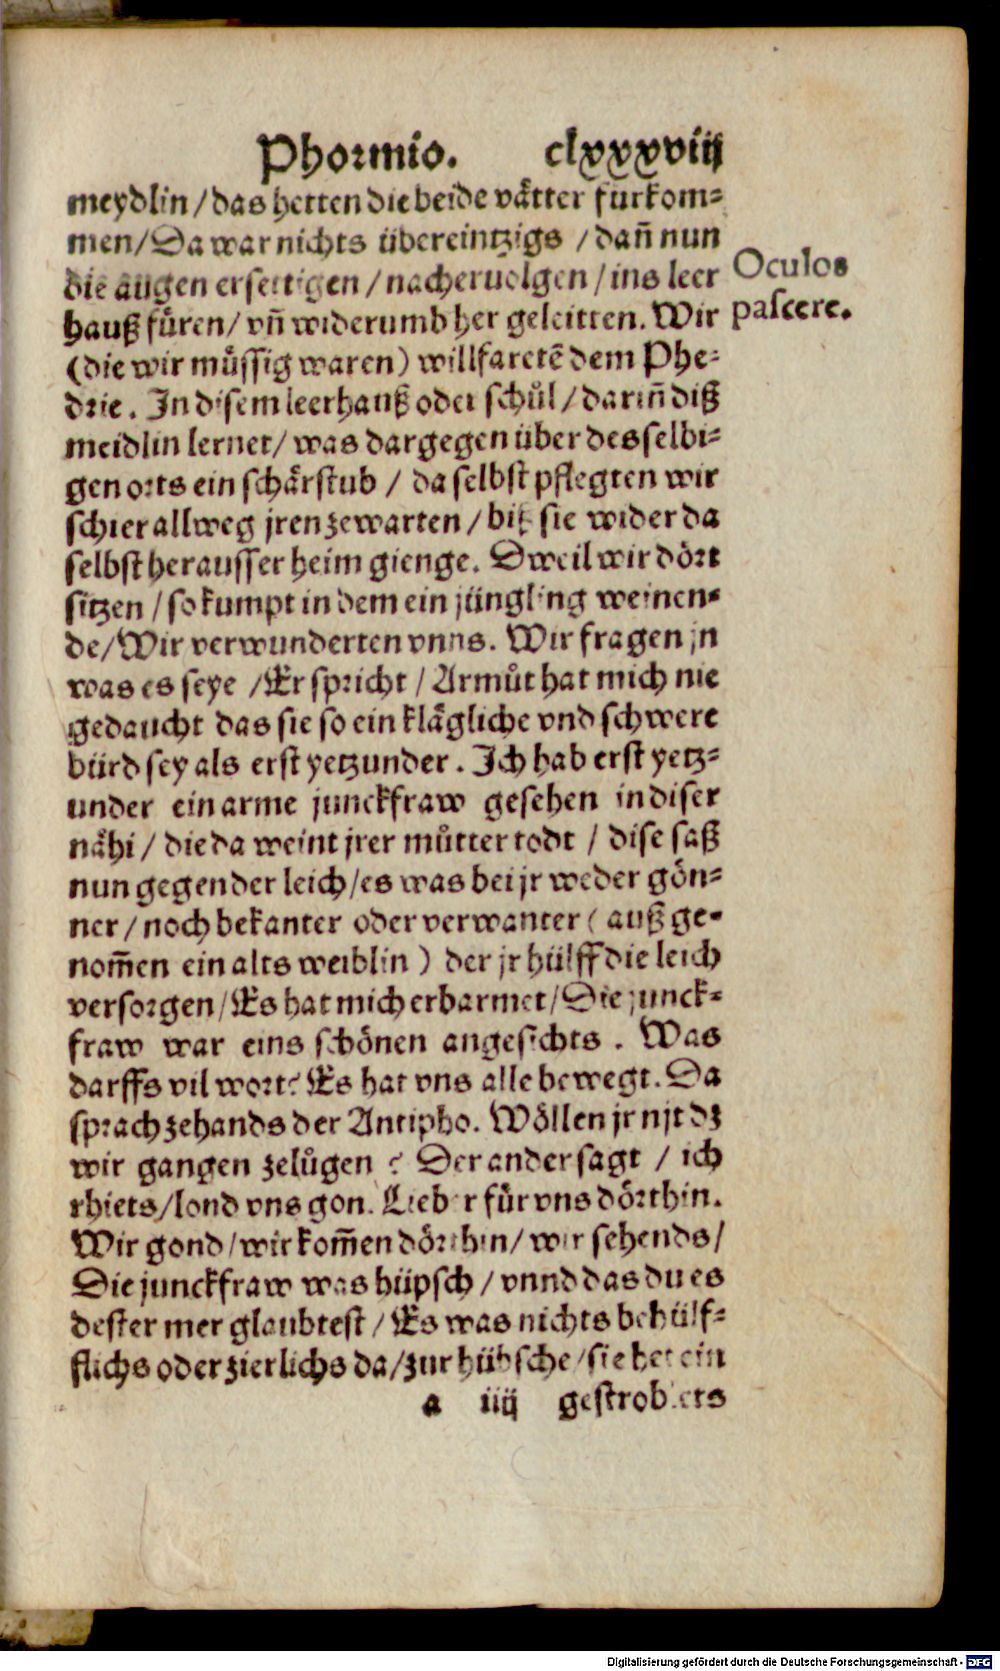 Phormio. clxxxviij
meydlin / das hetten die beide vätter fürkom⸗
men / Da war nichts übereintzigs / dañ nun
die augen ersettigen / nachervolgen / ins leer
hauß fůren / vñ widerumb her geleitten. Wir
(die wir můssig waren) willfaretẽ dem Phe⸗
drie. In disem leerhauß oder schůl / dariñ diß
meidlin lernet / was dargegen über desselbi⸗
gen orts ein schärstub / da selbst pflegten wir
schier allweg jren zewarten / biß sie wider da
selbst herausser heim gienge. Dweil wir dört
sitzen / so kumpt in dem ein jüngling weinen⸗
de / Wir verwunderten vnns. Wir fragen jn
was es seye / Er spricht / Armůt hat mich nie
gedaucht das sie so ein klägliche vnd schwere
bürd sey als erst yetzunder. Ich hab erst yetz⸗
under ein arme junckfraw gesehen in diser
nähi / die da weint jrer můtter todt / dise saß
nun gegen der leich / es was bei jr weder gön⸗
ner / noch bekanter oder verwanter (auß ge⸗
nom̃en ein alts weiblin) der jr hülff die leich
versorgen / Es hat mich erbarmet / Die junck⸗
fraw war eins schönen angesichts. Was
darffs vil wort? Es hat vns alle bewegt. Da
sprach zehands der Antipho. Wöllen jr njt dz
wir gangen zelůgen? Der ander sagt / ich
rhiets / lond vns gon. Lieber für vns dörthin.
Wir gond / wir kom̃en dörthin / wir sehends /
Die junckfraw was hüpsch / vnnd das du es
dester mer glaubtest / Es was nichts behülf⸗
flichs oder zierlichs da / zur hübsche / sie het ein
a iiij gestroblets
Oculos
pascere.
Digitalisierung gefördert durch die Deutsche Forschungsgemeinschaft - DFG